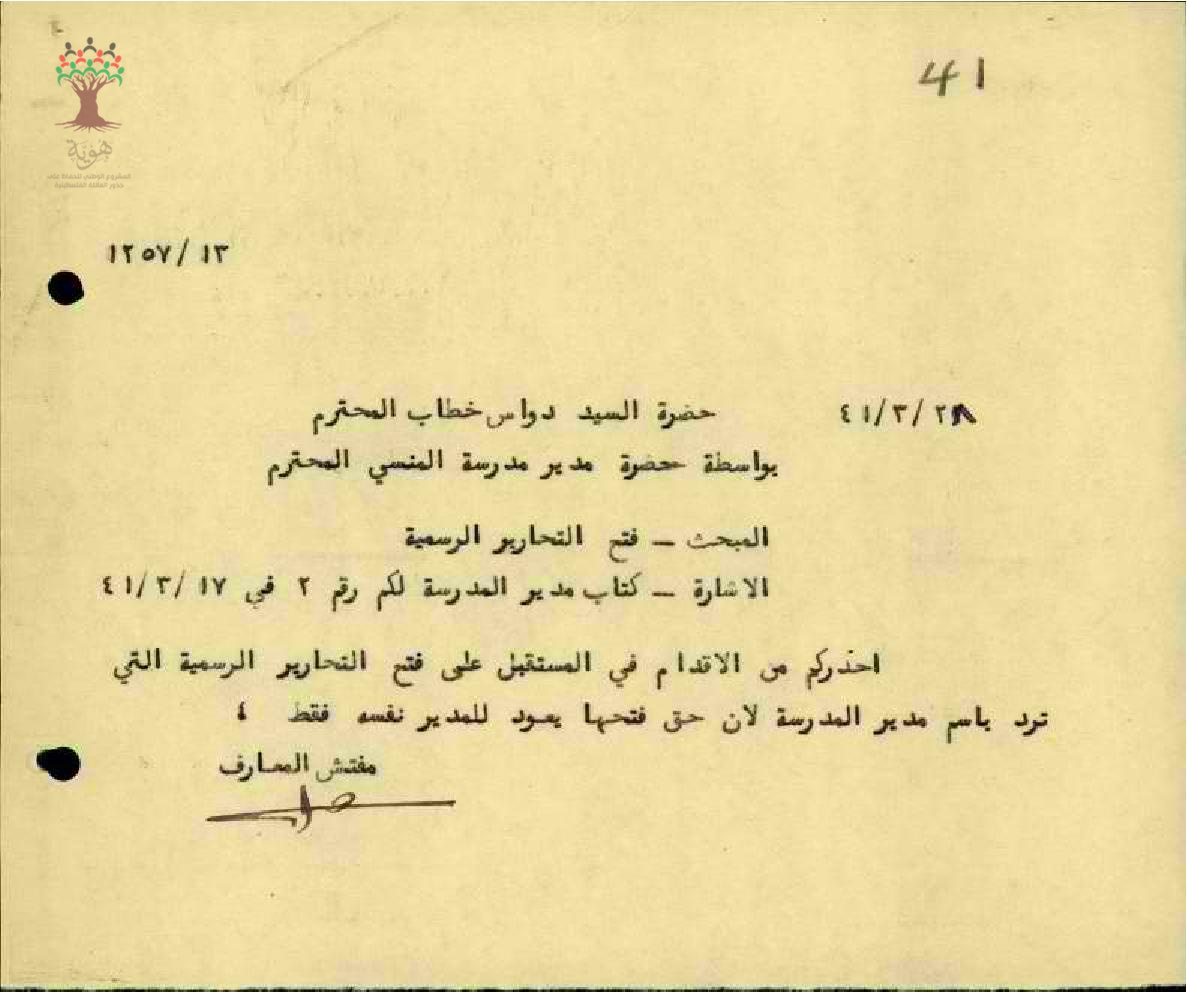 41
هوية
المشروع الوطني للحفاظ على
جذور العائلة الفلسطينية
١٢٥٧/١٣
٤١/٣/٢٨
حضرة السيد دواس خطاب المحترم
بواسطة حضرة مدير مدرسة المنسي المحترم
المبحث – فتح التحارير الرسمية
الاشارة – كتاب مدير المدرسة لكم رقم ٢ في ٤١/٣/١٧
احذركم من الاقدام في المستقبل على فتح التحارير الرسمية التي
ترد باسم مدير المدرسة لان حق فتحها يعود للمدير نفسه فقط ،
مفتش المعارف